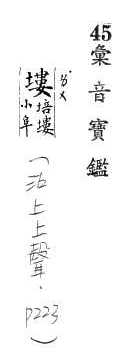 45彙音寶鑑
ㄌㄡˋ
塿 培塿小阜
(沽上上聲．P223)